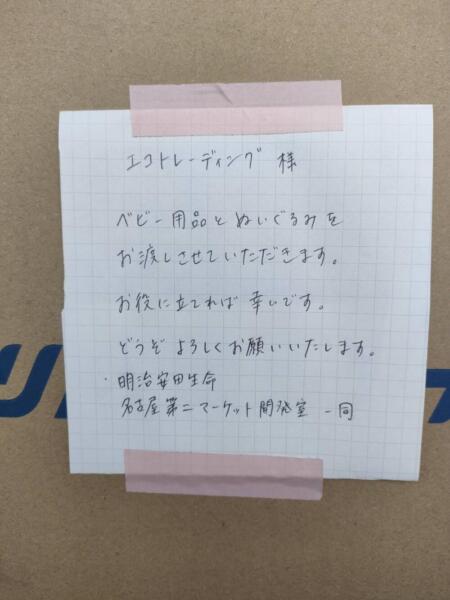 エコトレーディング 様
ベビー用品とぬいぐるみを
お渡しさせていただきます。
お役に立てれば幸いです。
どうぞよろしくお願いいたします。
明治安田生命
名古屋第二マーケット開発室 一同